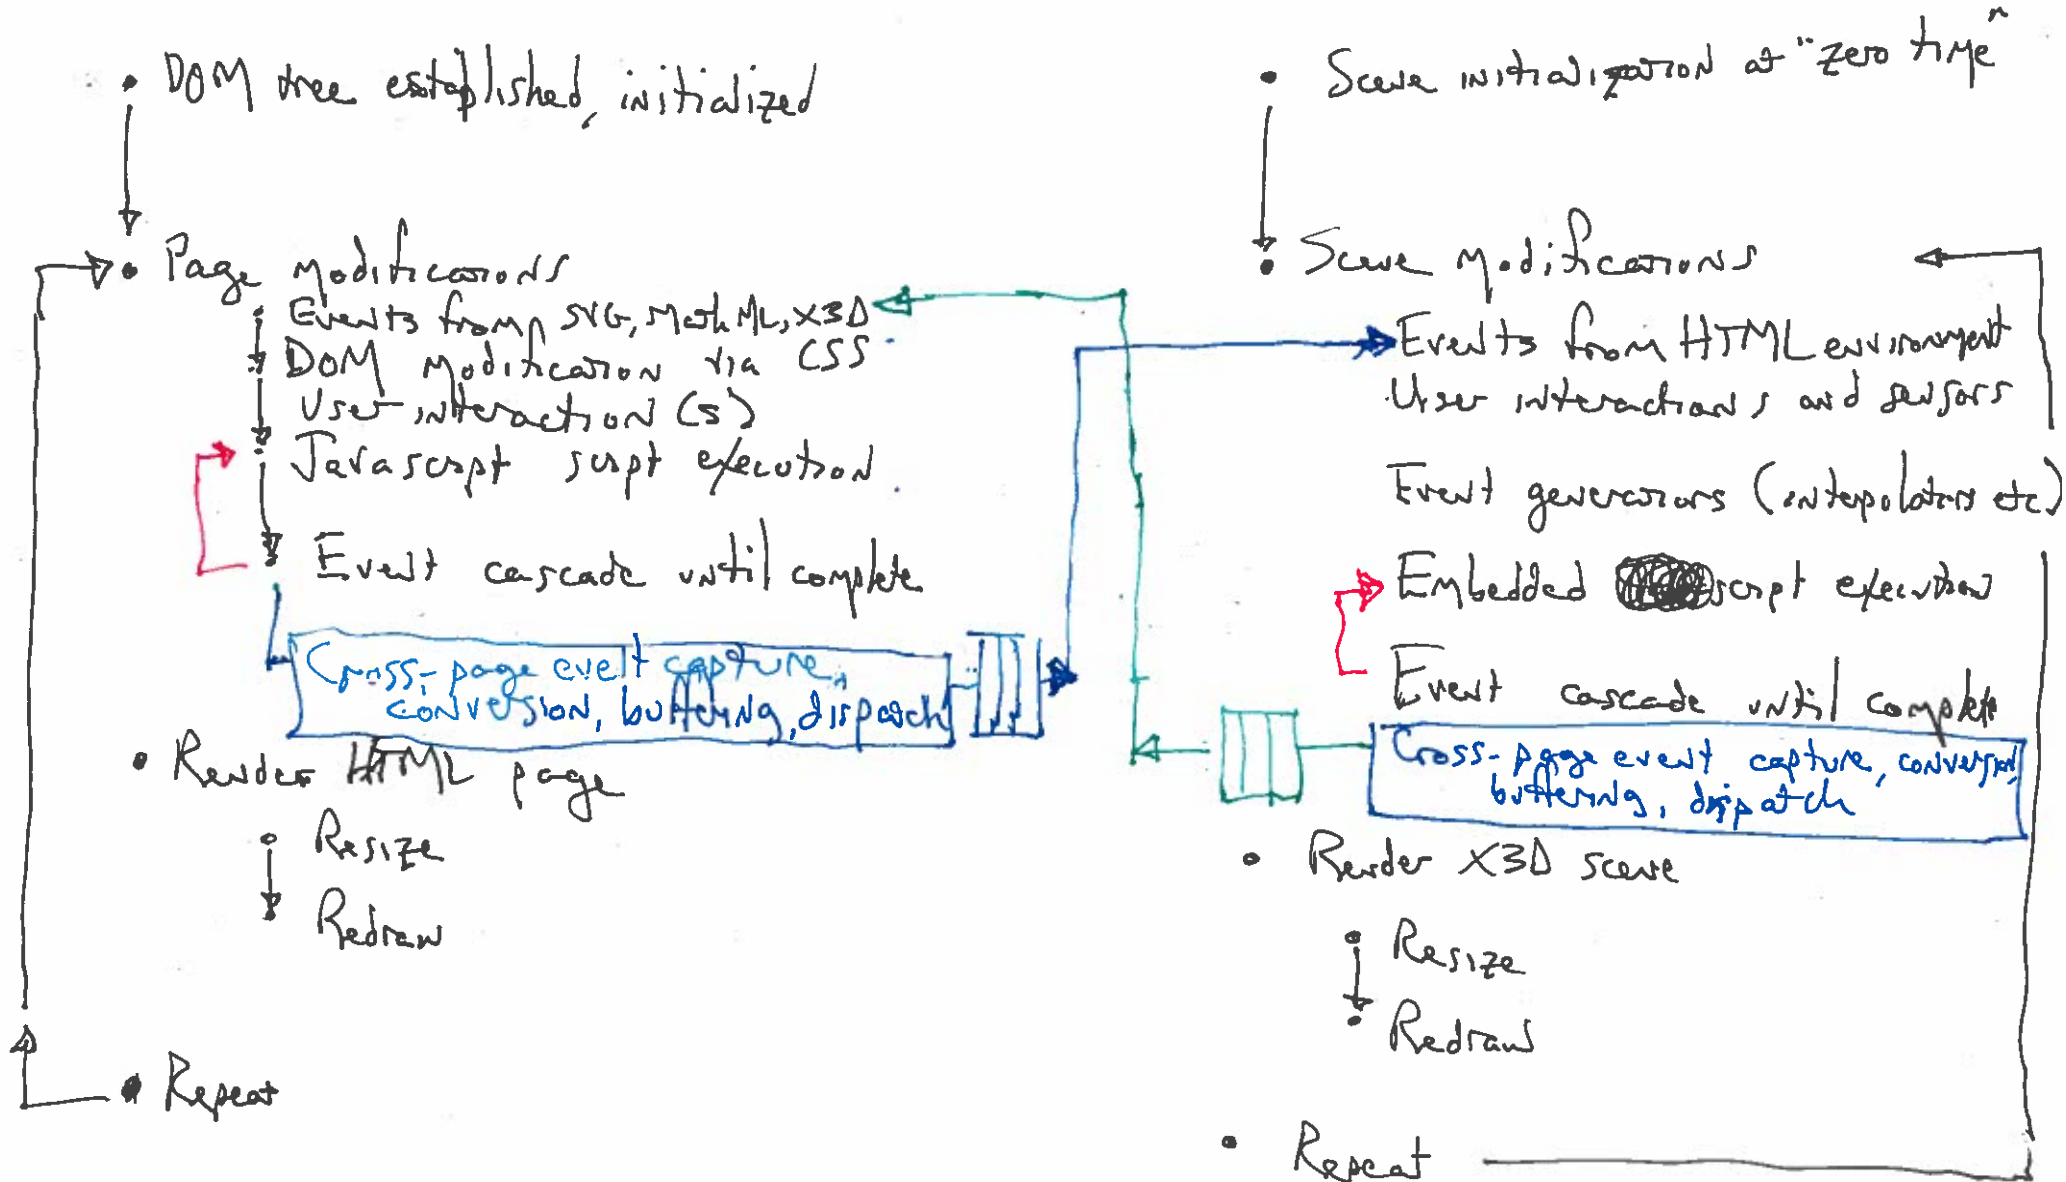 DOM tree established, initialized
Page modifications
Events from SVG, MathML, X3D
DOM modification via CSS
User interaction(s)
Javascript script execution
Event cascade until complete
Cross-page event capture,
conversion, buffering, dispatch
Render HTML page
Resize
Redraw
Repeat
Scene initialization at "zero time"
Scene modifications
Events from HTML environment
User interactions and sensors
Event generators (interpolators etc.)
Embedded script execution
Event cascade until complete
Cross-page event capture, conversion,
buffering, dispatch
Render X3D scene
Resize
Redraw
Repeat